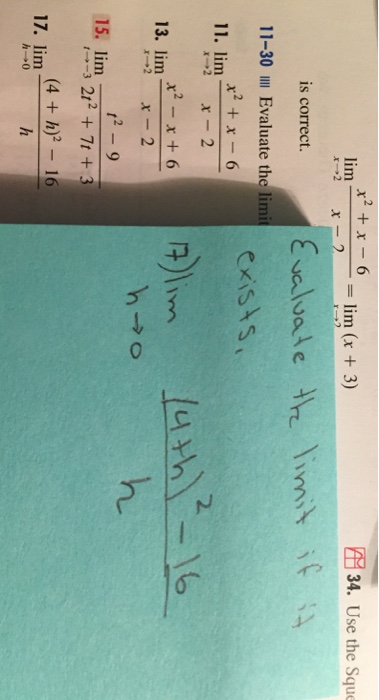 lim x→2 x² + x − 6 / x − 2 = lim x→2 (x + 3)
is correct.
11–30 Evaluate the limit
11. lim x→2 x² + x − 6 / x − 2
13. lim x→2 x² − x + 6 / x − 2
15. lim t→−3 t² − 9 / 2t² + 7t + 3
17. lim h→0 (4 + h)² − 16 / h
34. Use the Sque
Evaluate the limit if it
exists.
17) lim h→0 (4+h)² − 16 / h